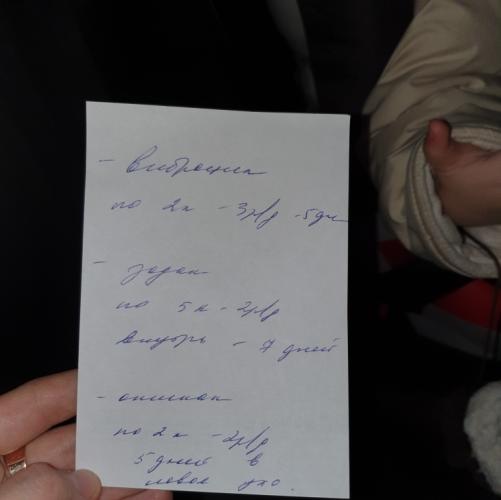 - Виброцил
по 2к - 3р/д - 5дн
- зодак
по 5к - 2р/д
внутрь - 7 дней
- анауран
по 2к - 2р/д
5 дней в
левое ухо.